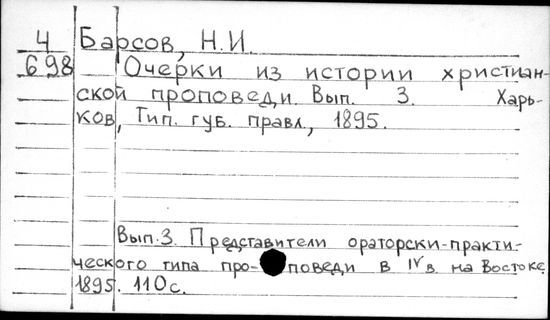 4 Барсов, Н.И.
698 Очерки из истории христиан-
ской проповеди. Вып. 3. Харь-
ков, Тип. губ. правл., 1895.
Вып.3. Представители ораторски-практи-
ческого типа про- поведи в IV в. на Востоке.
1895. 110 с.